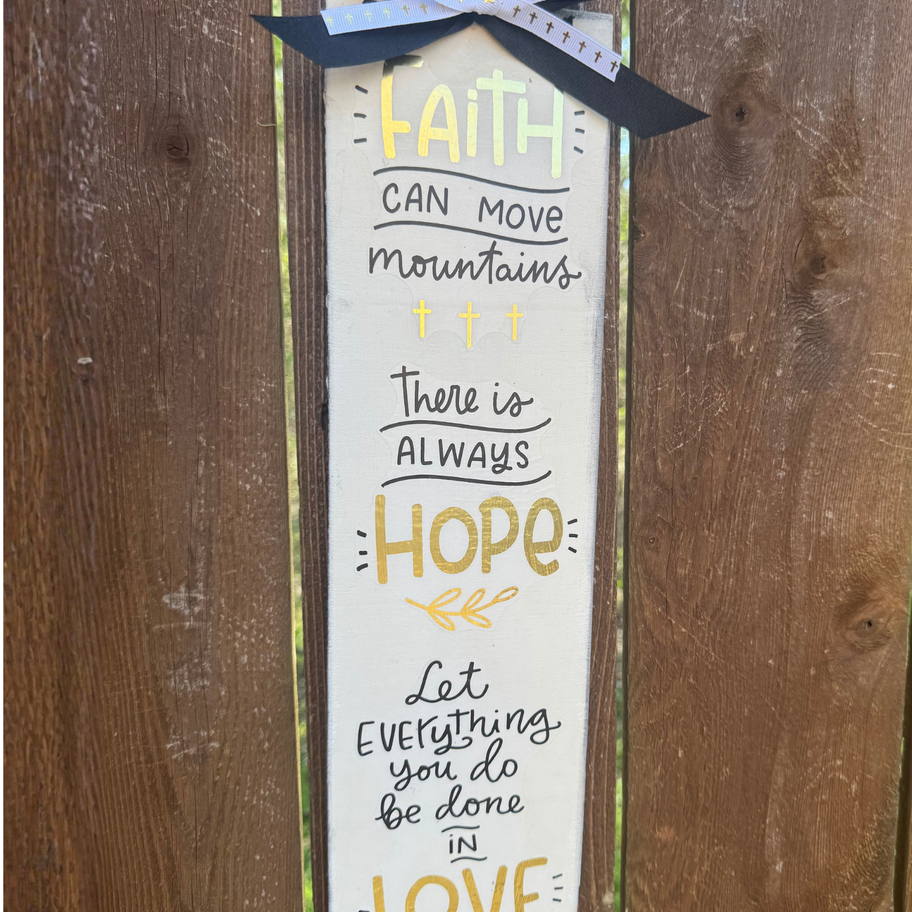 FAITH
CAN MOVE
mountains
There is
ALWAYS
HOPE
Let
EVERYthing
you do
be done
IN
LOVE